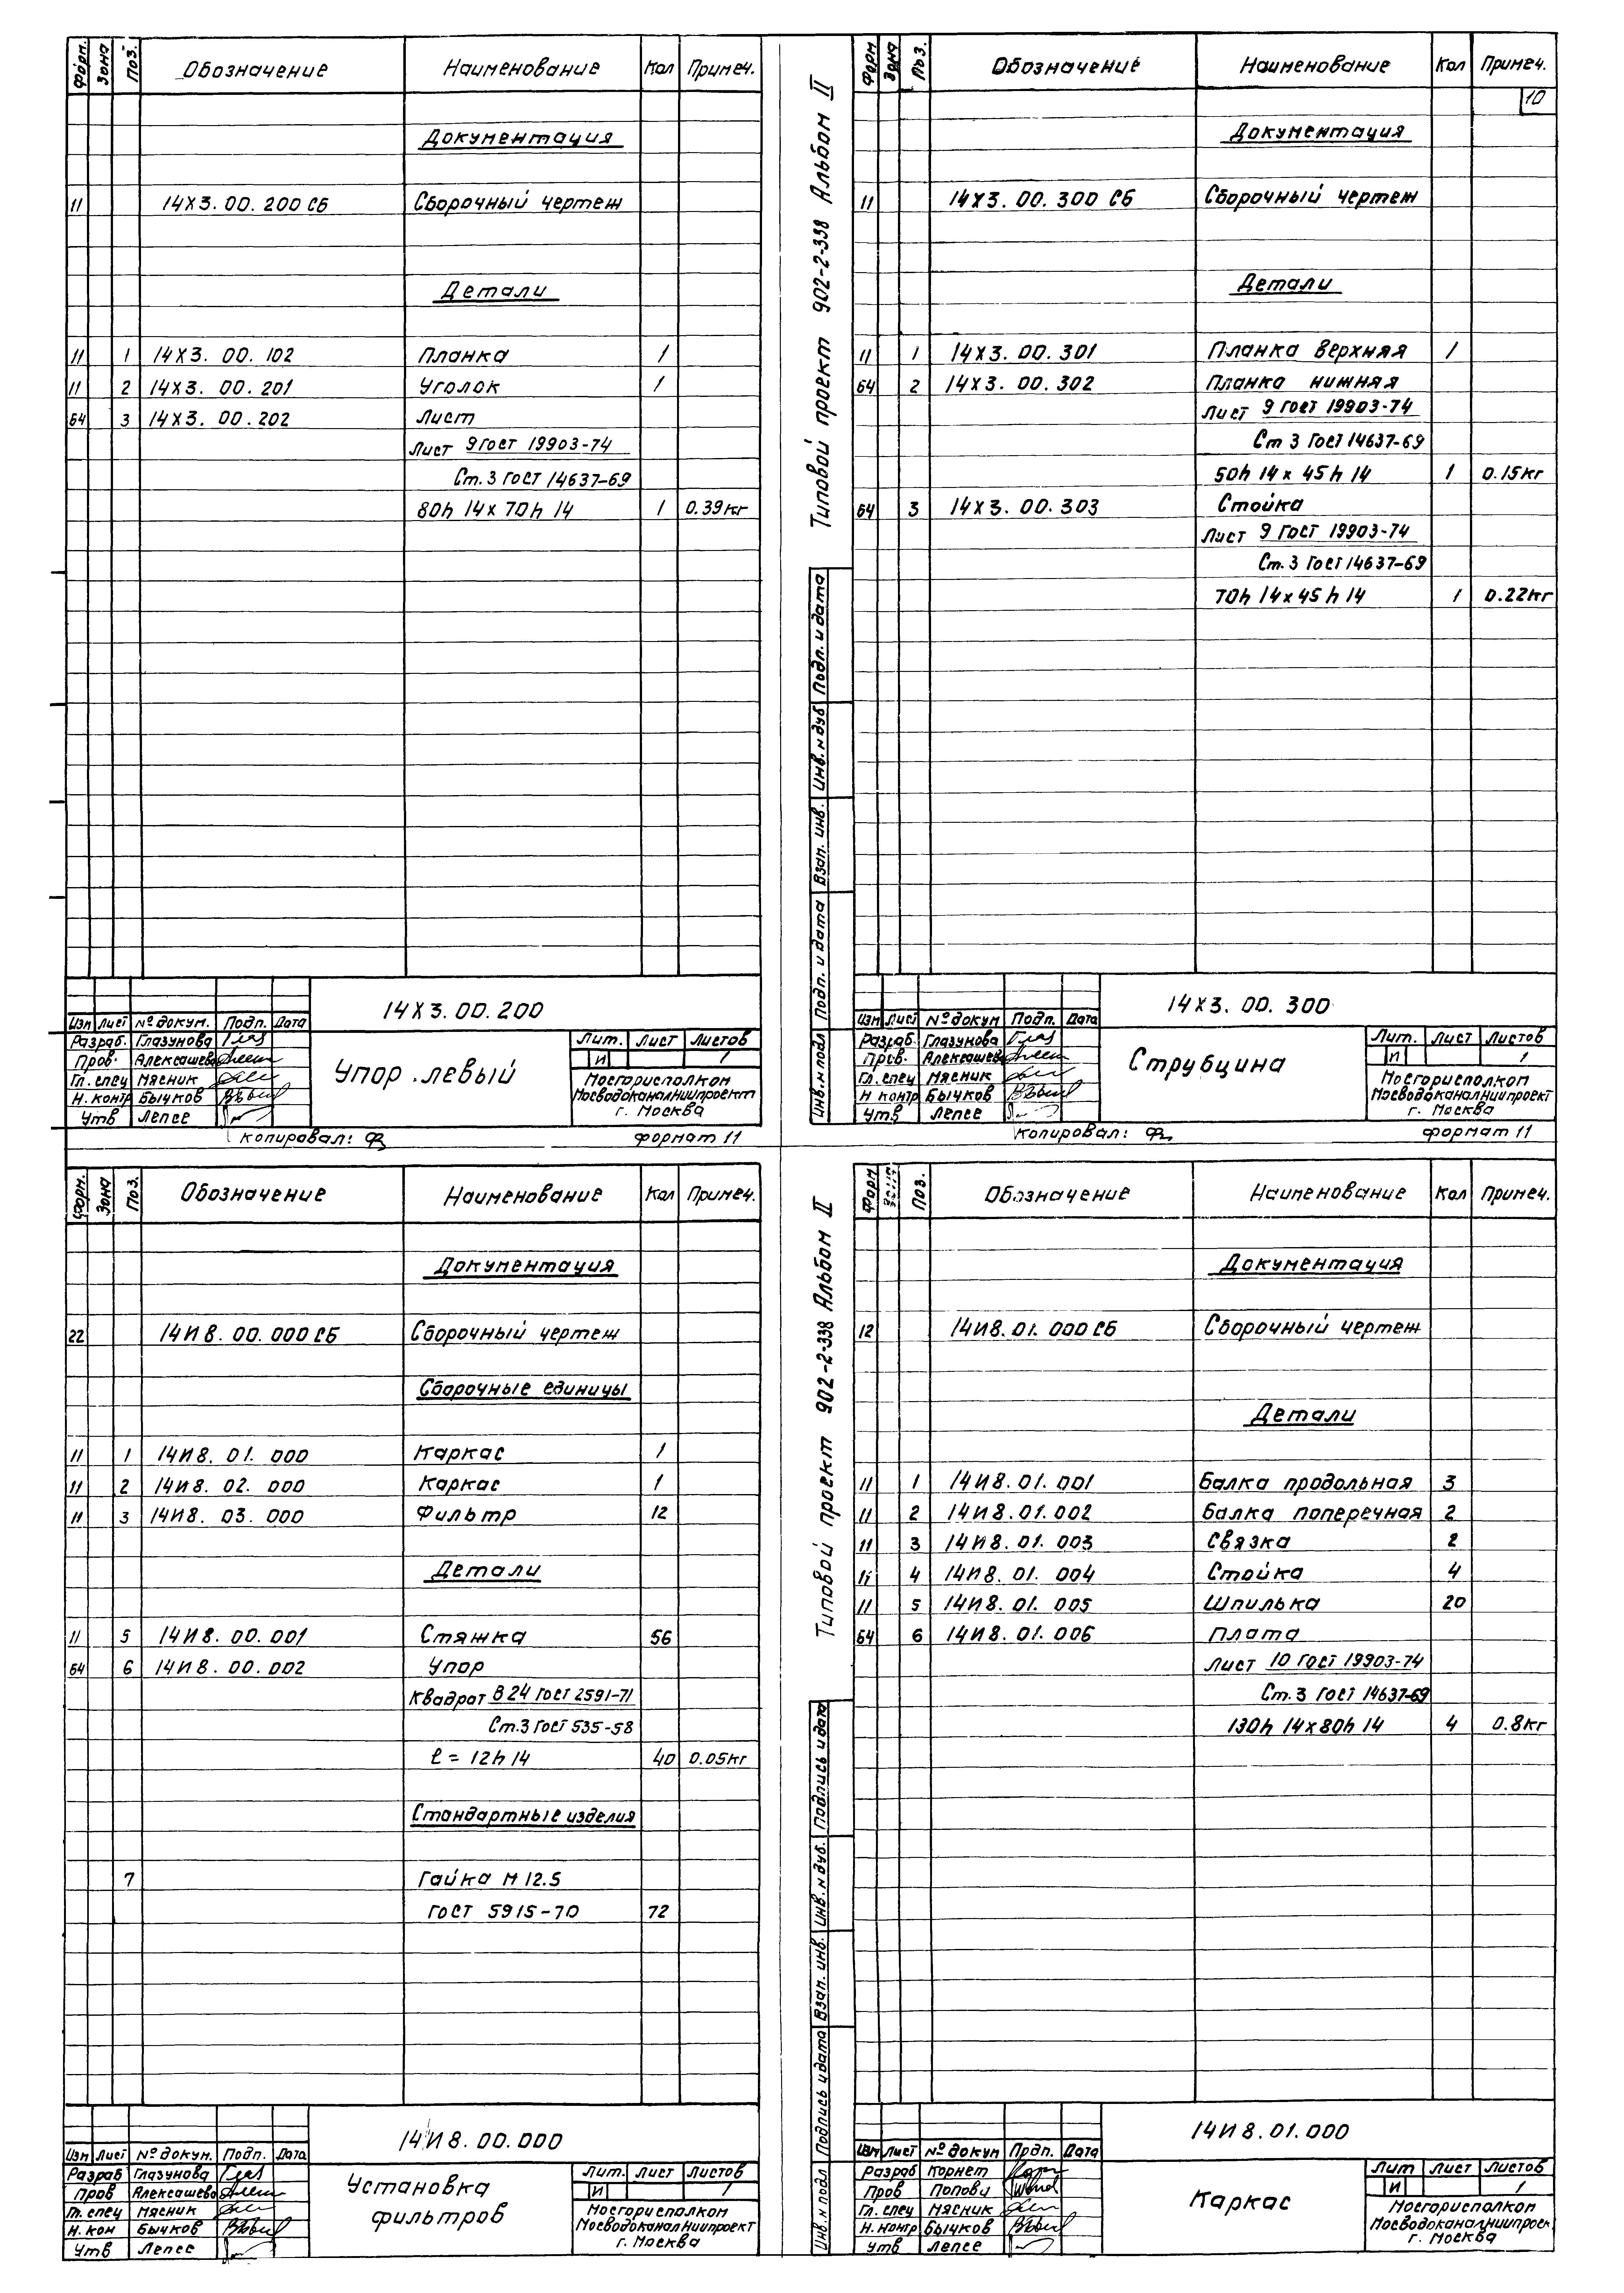 Форм. Зона Поз. Обозначение Наименование Кол Примеч.
Документация
11 14Х3.00.200 СБ Сборочный чертеж
Детали
11 1 14Х3.00.102 Планка 1
11 2 14Х3.00.201 Уголок 1
б4 3 14Х3.00.202 Лист
Лист 9 Гост 19903-74
Ст.3 Гост 14637-69
80h 14 х 70h 14 1 0.39кг
14Х3.00.200
Изм Лист № докум. Подп. Дата
Разраб. Глазунова
Пров. Алексашева
Гл. спец Мясник
Н. контр Бычков
Утв Лепсе
Упор левый
Лит. Лист Листов
И 1
Мосгорисполком
Мосводоканалниипроект
г. Москва
Копировал: формат 11
Типовой проект 902-2-338 Альбом II
Форм Зона Поз. Обозначение Наименование Кол Примеч.
10
Документация
11 14Х3.00.300 СБ Сборочный чертеж
Детали
11 1 14Х3.00.301 Планка верхняя 1
б4 2 14Х3.00.302 Планка нижняя
Лист 9 Гост 19903-74
Ст 3 Гост 14637-69
50h 14 х 45h 14 1 0.15кг
б4 3 14Х3.00.303 Стойка
Лист 9 Гост 19903-74
Ст.3 Гост 14637-69
70h 14 х 45h 14 1 0.22кг
Инв.н подл Подп. и дата Взап. инв. Инв.н дуб Подп. и дата
14Х3.00.300
Изм Лист № докум Подп. Дата
Разраб. Глазунова
Пров. Алексашева
Гл. спец Мясник
Н контр Бычков
Утв Лепсе
Струбцина
Лит. Лист Листов
И 1
Мосгорисполком
Мосводоканалниипроект
г. Москва
Копировал: формат 11
Форм. Зона Поз. Обозначение Наименование Кол Примеч.
Документация
22 14И8.00.000 СБ Сборочный чертеж
Сборочные единицы
11 1 14И8.01.000 Каркас 1
11 2 14И8.02.000 Каркас 1
11 3 14И8.03.000 Фильтр 12
Детали
11 5 14И8.00.001 Стяжка 56
б4 6 14И8.00.002 Упор
Квадрат В 24 Гост 2591-71
Ст.3 Гост 535-58
ℓ = 12h 14 40 0.05кг
Стандартные изделия
7 Гайка М 12.5
Гост 5915-70 72
14И8.00.000
Изм Лист № докум. Подп. Дата
Разраб Глазунова
Пров Алексашева
Гл. спец Мясник
Н. кон Бычков
Утв Лепсе
Установка
фильтров
Лит. Лист Листов
И 1
Мосгорисполком
Мосводоканалниипроект
г. Москва
Типовой проект 902-2-338 Альбом II
Форм Поз. Обозначение Наименование Кол Примеч.
Документация
12 14И8.01.000 СБ Сборочный чертеж
Детали
11 1 14И8.01.001 Балка продольная 3
11 2 14И8.01.002 Балка поперечная 2
11 3 14И8.01.003 Связка 2
11 4 14И8.01.004 Стойка 4
11 5 14И8.01.005 Шпилька 20
б4 6 14И8.01.006 Плата
Лист 10 Гост 19903-74
Ст.3 Гост 14637-69
130h 14 х 80h 14 4 0.8кг
Инв.н подл Подпись и дата Взап. инв. Инв.н дуб. Подпись и дата
14И8.01.000
Изм Лист № докум Подп. Дата
Разраб Корнет
Пров Попови
Гл. спец Мясник
Н. контр Бычков
Утв Лепсе
Каркас
Лит Лист Листов
И 1
Мосгорисполком
Мосводоканалниипроек
г. Москва